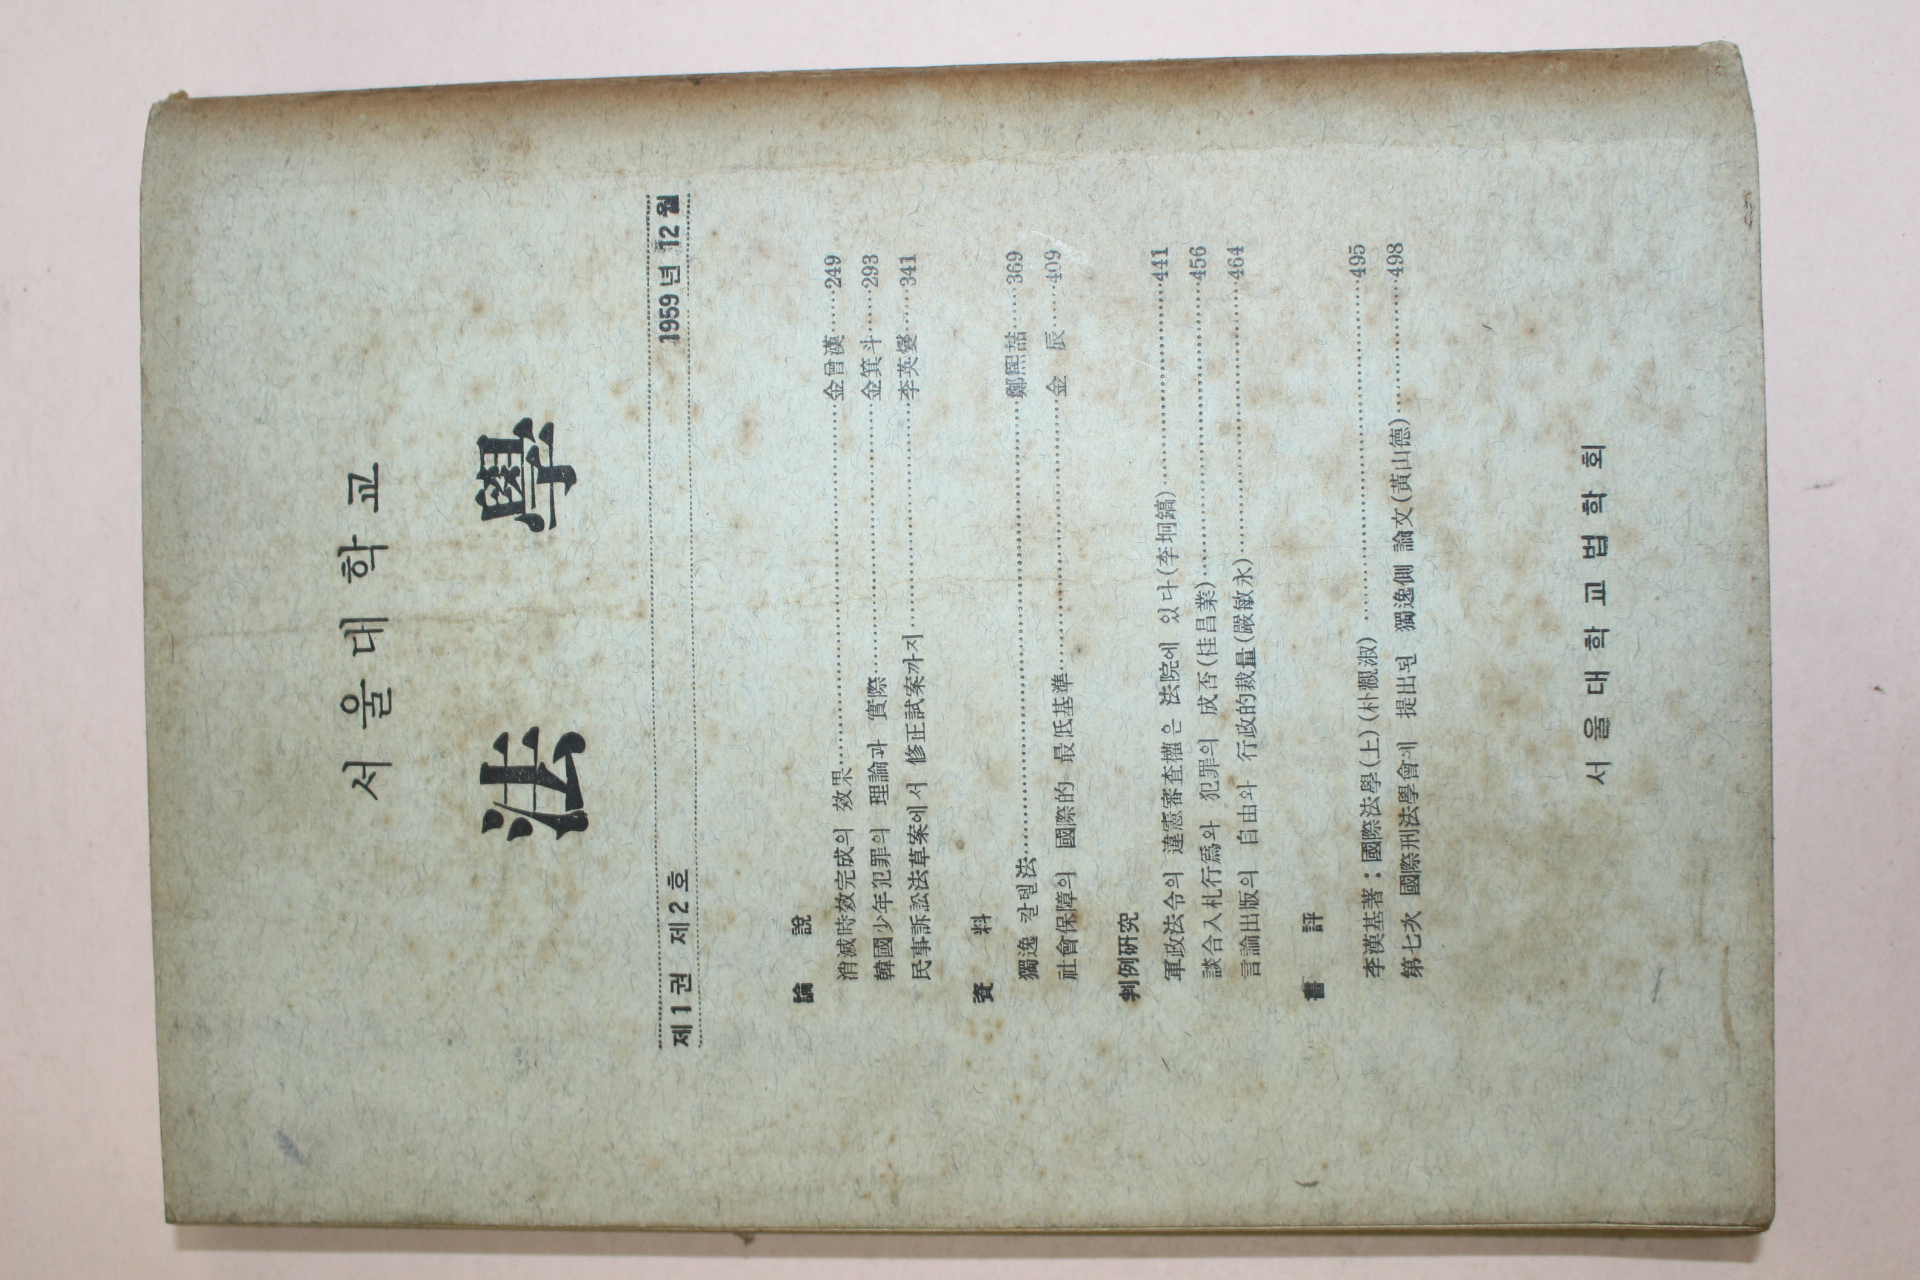 서울대학교
法 學
제1권 제2호 1959년 12월
論 說
消滅時效完成의 效果……金曾漢……249
韓國少年犯罪의 理論과 實際……金箕斗……293
民事訴訟法草案에서 修正試案까지……李英燮……341
資 料
獨逸 칼텔法……鄭熙喆……369
社會保障의 國際的 最低基準……金 辰……409
判例硏究
軍政法令의 違憲審査權은 法院에 있다(李坰鎬)……441
談合入札行爲와 犯罪의 成否(桂昌業)……456
言論出版의 自由와 行政的裁量(嚴敏永)……464
書 評
李漢基著：國際法學(上)(朴觀淑)……495
第七次 國際刑法學會에 提出된 獨逸側 論文(黃山德)……498
서울대학교법학회